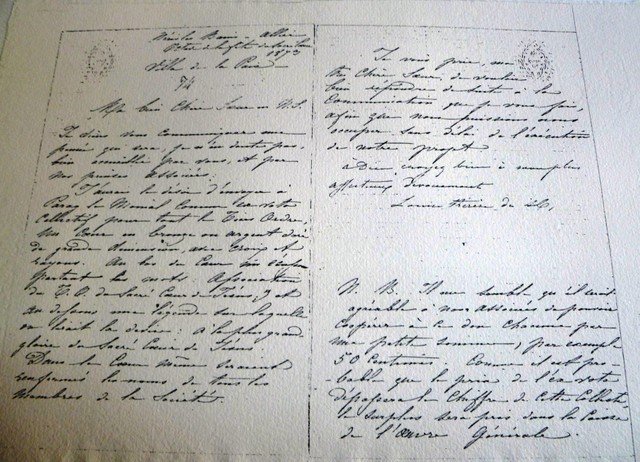 Octave de la fête du Sacré Cœur
1873
Villa de la Paix
74
Ma bien Chère Sœur en N.S.
Je viens vous communiquer une
pensée qui sera, je n'en doute pas,
bien accueillie par vous, et par
nos pieuses associées.
J'aurais le désir d'envoyer à
Paray le Monial comme ex-voto
collectif pour tout le Tiers Ordre,
un Cœur en bronze ou argent doré
de grande dimension, avec Croix et
rayons. Au bas du Cœur un
portant les mots Association
du T. O. du Sacré Cœur de Jésus, et
au dessous une légende sur laquelle
on lirait la devise : A la plus grande
gloire du Sacré Cœur de Jésus
Dans le Cœur même seraient
renfermés les noms de tous les
Membres de la Société.
Je vous prie, ma
très Chère Sœur, de vouloir
bien répondre de suite à la
Communication que je vous fais,
afin que nous puissions nous
occuper sans délai de l'exécution
de notre projet
à Dieu, croyez bien à mon plus
affectueux dévouement
Louise Thérèse de
N. B. Il me semble, qu'il serait
agréable à nos Associées de pouvoir
coopérer à ce don chacune par
une petite somme, par exemple
50 Centimes. Comme il est pro-
-bable que le prix de l'ex voto
dépassera le Chiffre de cette Collecte
le surplus sera pris dans la Caisse
de l'œuvre Générale.